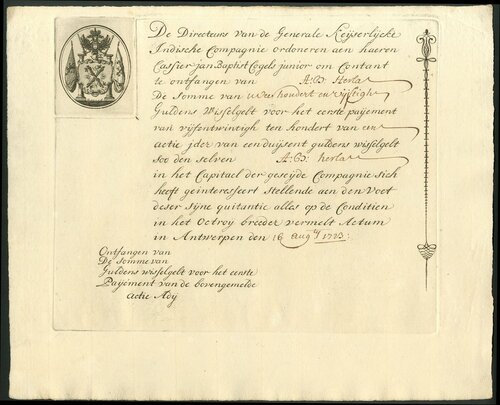 De Directeurs van de Generale Keijserlijcke
Indische Compagnie ordoneren aen haeren
Cassier jan Baptist Cogels junior om Contant
te ontfangen van
De Somme van
Guldens Wisselgelt voor het eerste paijement
van vijfentwintigh ten hondert van een
actie jder van eenduijsent guldens wisselgelt
soo den selven
in het Capitael der geseijde Compagnie sich
heeft geinteresseert Stellende aen den Voet
deser sijne quitantie alles op de Conditien
in het Octroy breeder vermelt Actum
in Antwerpen den 16 aug 1723
Ontfangen van
De Somme van
Guldens wisselgelt voor het eerste
Paijement van de bovengemelde
actie Adij